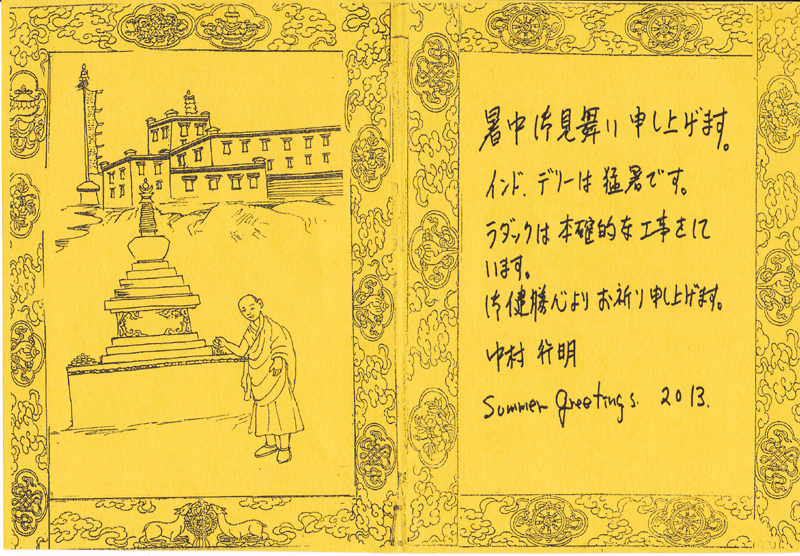 暑中御見舞い申し上げます。
インド、デリーは猛暑です。
ラダックは本確的な工事をして
います。
御健勝心よりお祈り申し上げます。
中村行明
Summer Greetings. 2013.